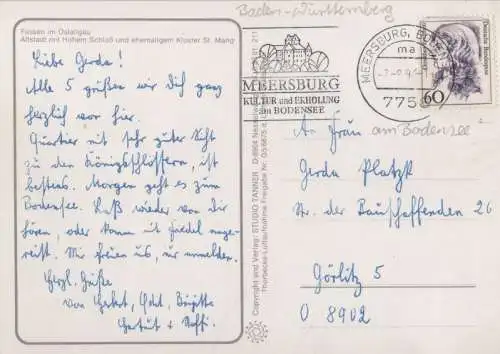 Füssen im Ostallgäu
Altstadt mit Hohem Schloß und ehemaligem Kloster St. Mang
Baden-Württemberg
Liebe Gerda!
Alle 5 grüßen wir Dich ganz
herzlich von hier.
Quartier mit sehr guter Sicht
zu den Königsschlössern, ist
bestens. Morgen geht es zum
Bodensee. Laß wieder von Dir
hören, oder komm mit Friedel ange-
reist. Wir freuen uns, nur anmelden.
Herzl. Grüße
von Gerhard, Brigitte
+ Steffi.
MEERSBURG
KULTUR und ERHOLUNG
am BODENSEE
MEERSBURG, BODENSEE
ma
775
Deutsche Bundespost
60
Copyright und Verlag: STUDIO TANNER
An Frau
am Bodensee
Gerda Platzk
Str. der Bauschaffenden 26
Görlitz 5
O 8902